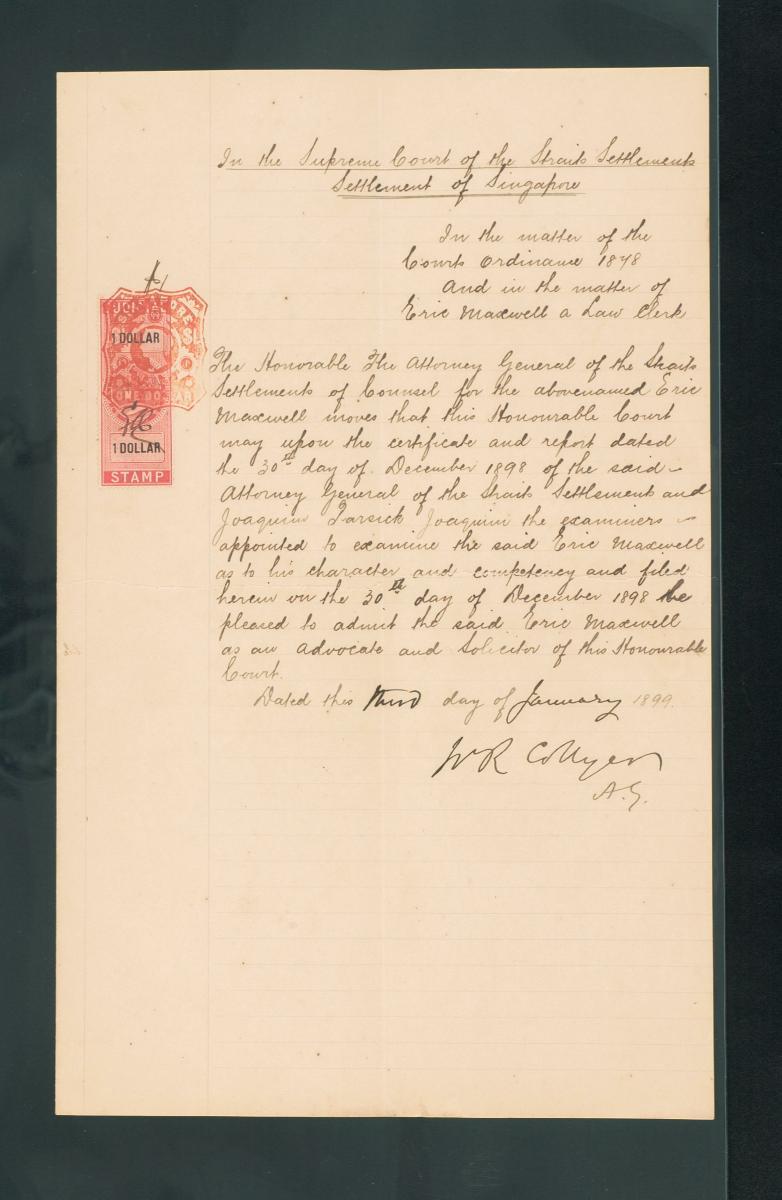 In the Supreme Court of the Straits Settlements
Settlement of Singapore
In the matter of the
Courts Ordinance 1878
And in the matter of
Eric Maxwell a Law Clerk
The Honorable The Attorney General of the Straits
Settlements of Counsel for the abovenamed Eric
Maxwell moves that this Honourable Court
may upon the certificate and report dated
the 30th day of December 1898 of the said
Attorney General of the Straits Settlements and
Joaquim Parsick Joaquim the examiners
appointed to examine the said Eric Maxwell
as to his character and competency and filed
herein on the 30th day of December 1898 be
pleased to admit the said Eric Maxwell
as an Advocate and Solicitor of this Honourable
Court.
Dated this third day of January 1899.
W R Collyer
A.G.
1 DOLLAR
1 DOLLAR
STAMP